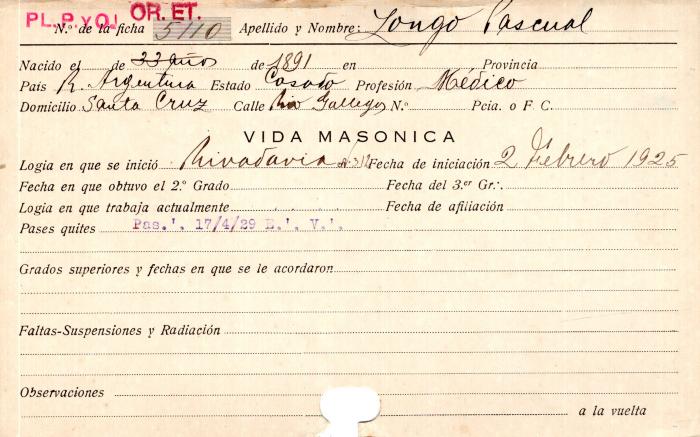 PL. P. y O. OR. ET.
N.º de la ficha 5110 Apellido y Nombre: Longo Pascual
Nacido el de 33 años de 1891 en Provincia
País R. Argentina Estado Casado Profesión Médico
Domicilio Santa Cruz Calle Rio Gallegos N.º Pcia. o F. C.
VIDA MASONICA
Logia en que se inició Rivadavia Nº 312 Fecha de iniciación 2 Febrero 1925
Fecha en que obtuvo el 2.º Grado Fecha del 3.er Gr∴
Logia en que trabaja actualmente Fecha de afiliación
Pases quites Pas.'. 17/4/29 E.'. V.'.
Grados superiores y fechas en que se le acordaron
Faltas-Suspensiones y Radiación
Observaciones
a la vuelta